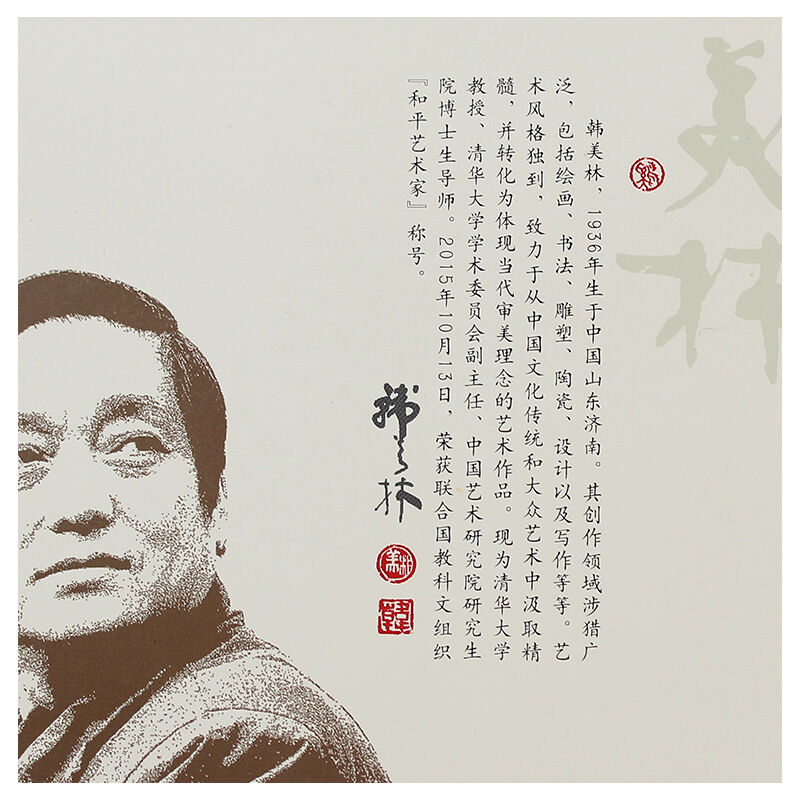 美林
韩美林，1936年生于中国山东济南。其创作领域涉猎广
泛，包括绘画、书法、雕塑、陶瓷、设计以及写作等等。艺
术风格独到，致力于从中国文化传统和大众艺术中汲取精
髓，并转化为体现当代审美理念的艺术作品。现为清华大学
教授、清华大学学术委员会副主任、中国艺术研究院研究生
院博士生导师。2015年10月13日，荣获联合国教科文组织
『和平艺术家』称号。
韩美林